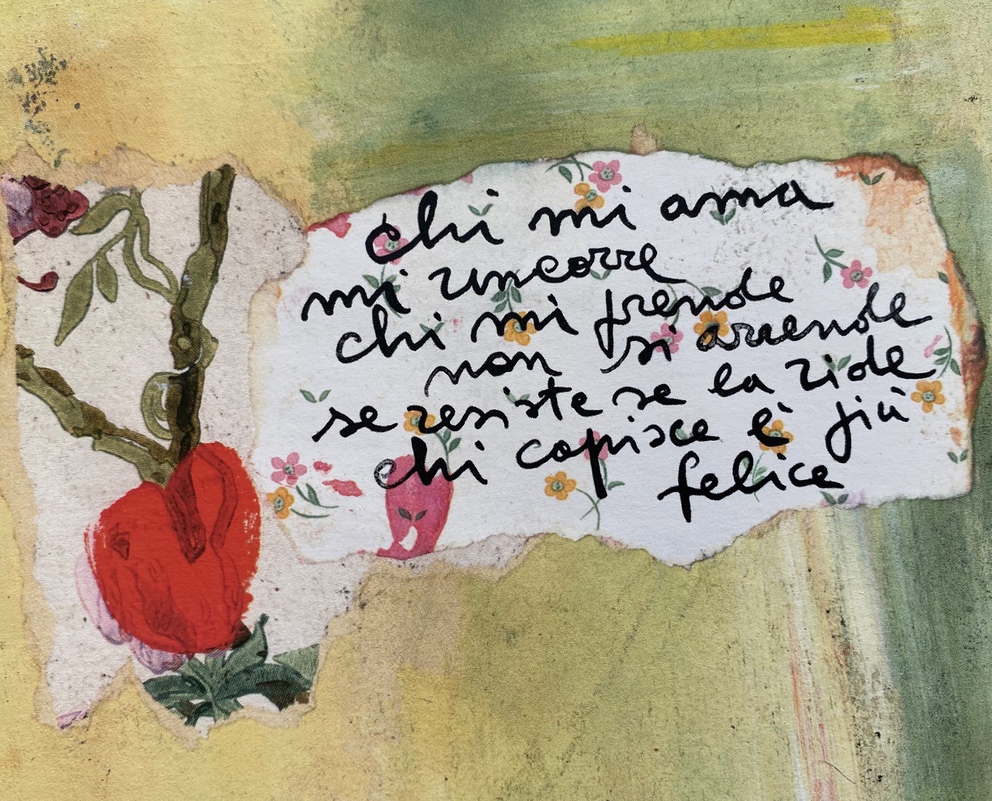 chi mi ama
mi rincorre
chi mi prende
non si arrende
se resiste se la ride
chi capisce è già
felice